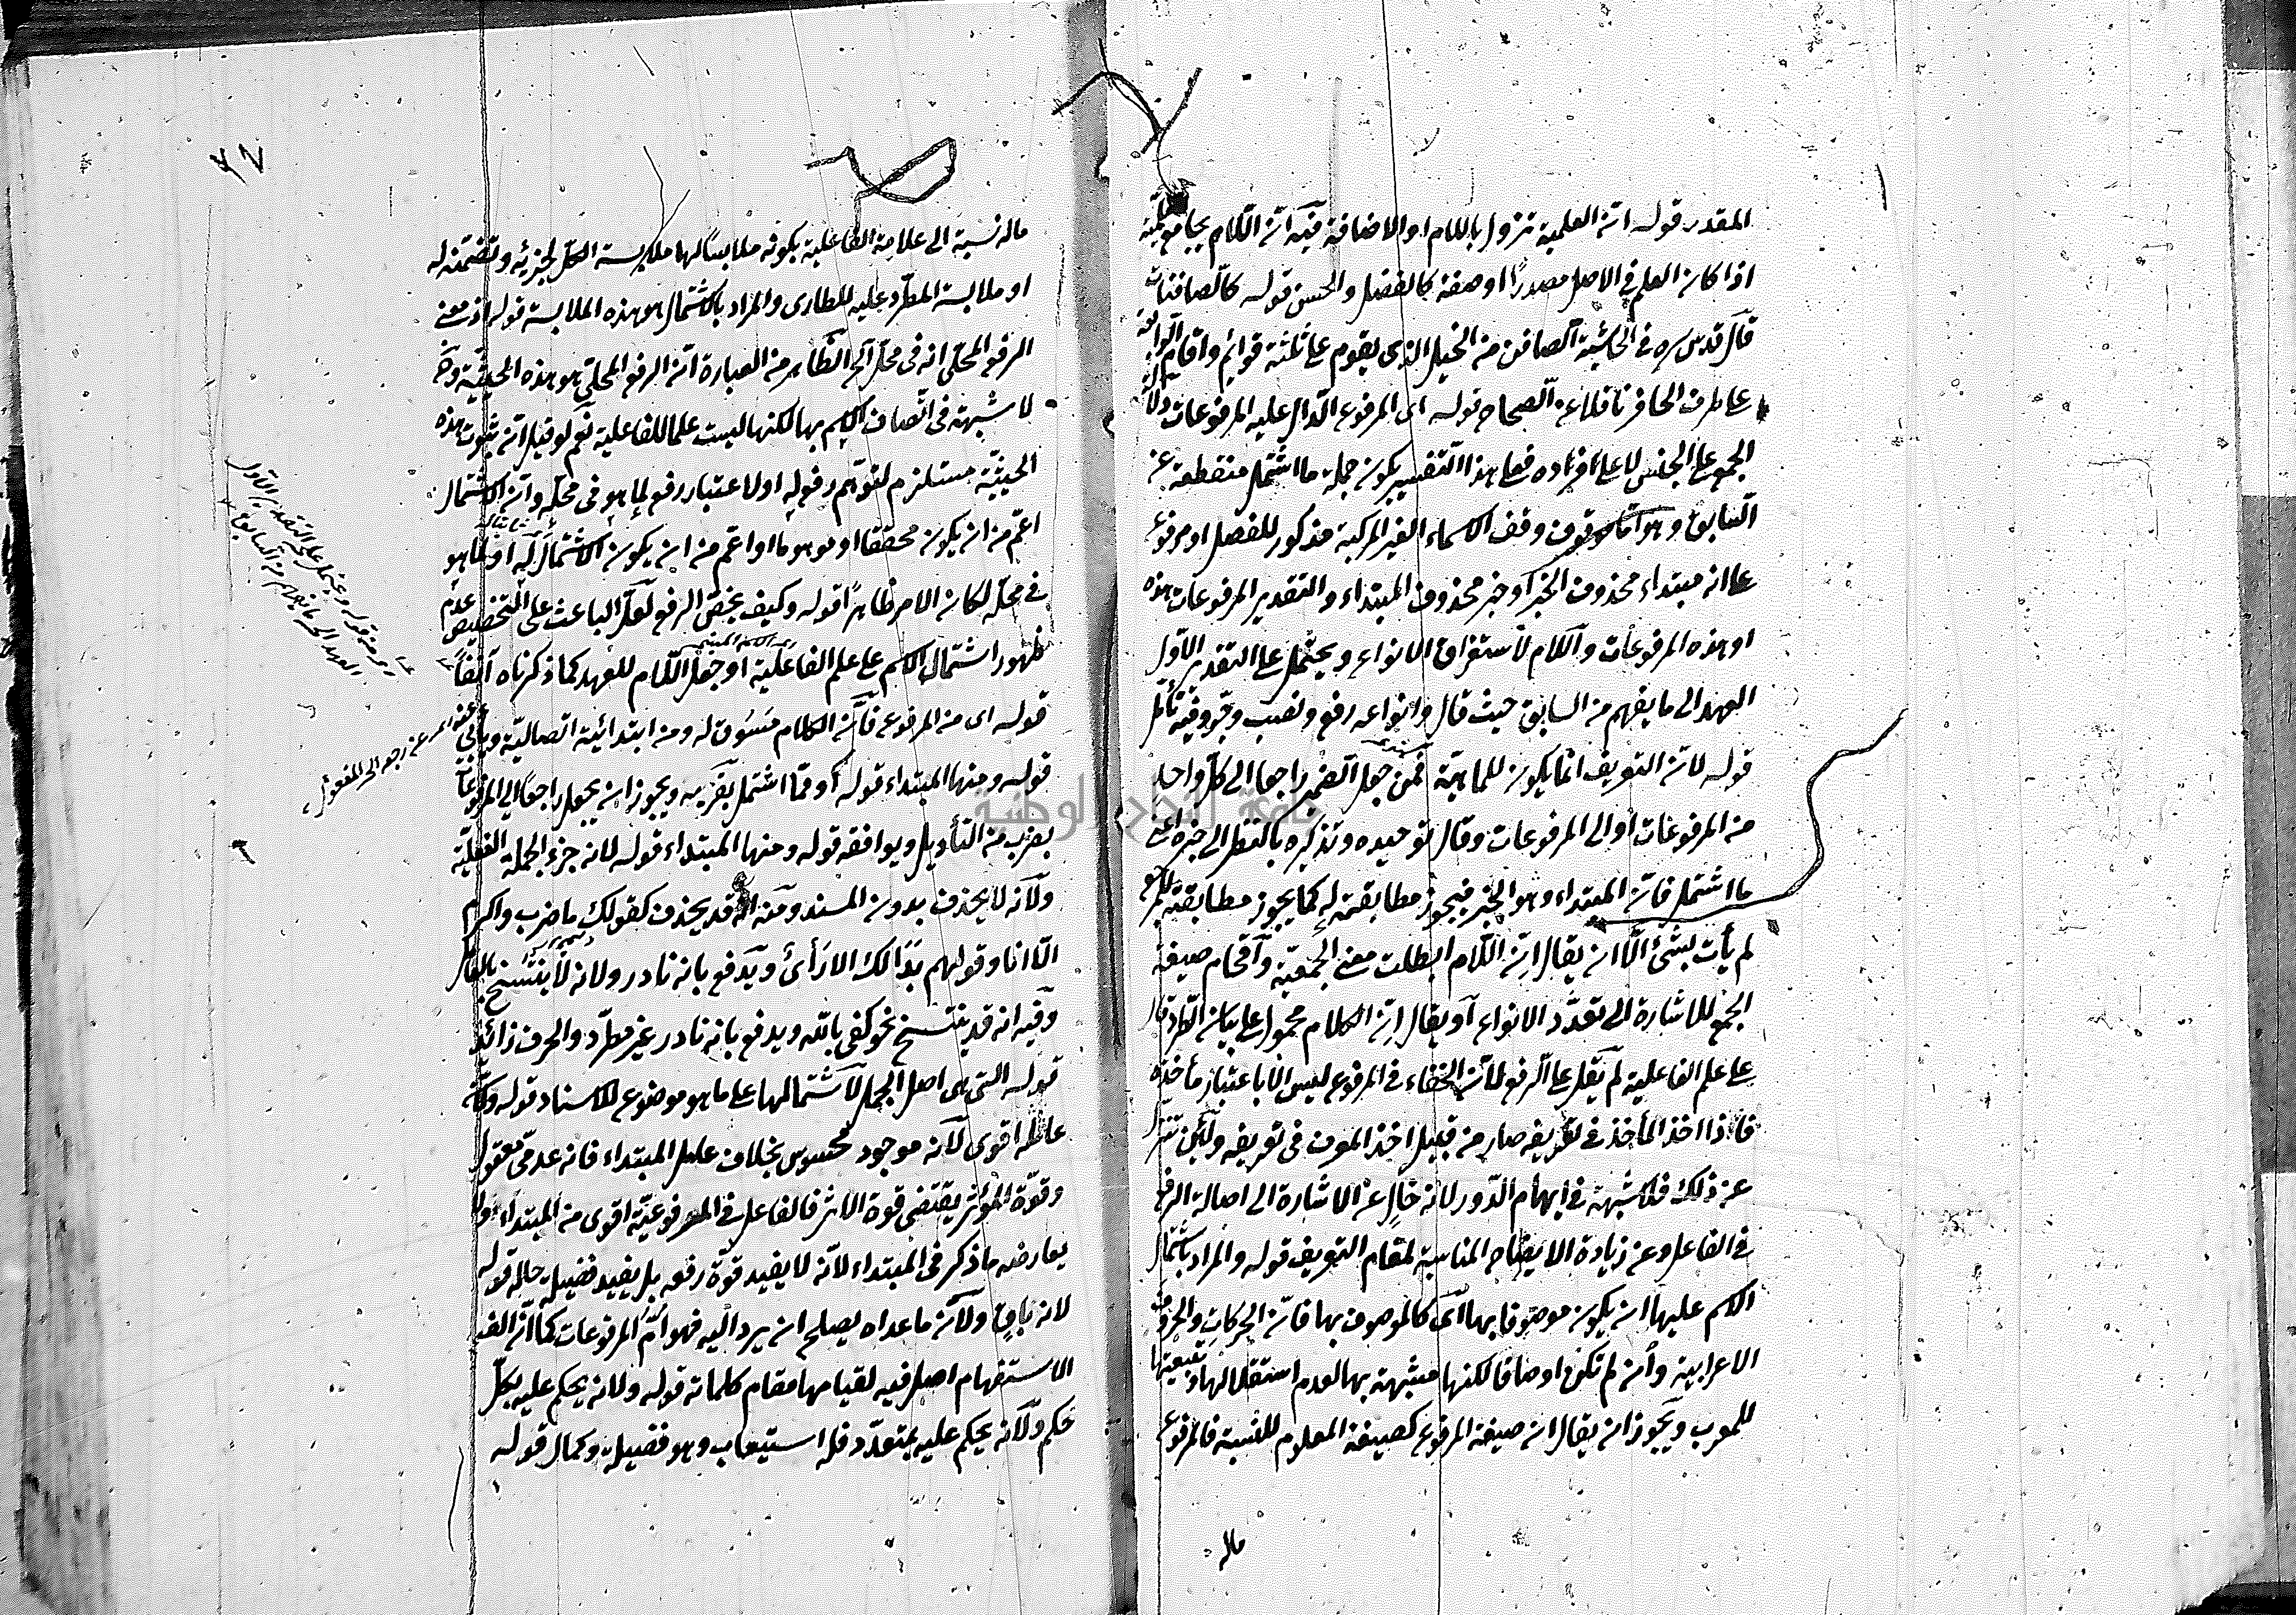 المقدر قوله ان العلمية تزول باللام او الاضافة فيه ان اللام يجامع العلمية
اذا كان العلم في الاصل مصدرا او صفة كالفضل والحسن قوله كالصافنات
قال قدس سره في الحاشية الصافن من الخيل الذي يقوم على ثلثة قوائم واقام الرابعة
على طرف الحافر ناقلا عن الصحاح قوله اى المرفوع الدال عليه المرفوعات دلالة
الجمع على الجنس لا على افراده فعلى هذا التفسير يكون جملة ما اشتمل منقطعة عن
السابق وهو اما موقوف وقف الاسماء الغير المركبة مذكور للفصل او مرفوع
على انه مبتداء محذوف الخبر او خبر محذوف المبتداء والتقدير المرفوعات هذه
او هذه المرفوعات واللام لاستغراق الانواع ويحتمل على التقدير الاول
العهد الى ما يفهم من السابق حيث قال وانواعه رفع ونصب وجر وفيه تأمل
قوله لان التعريف انما يكون للماهية فمن جعل الضمير راجعا الى كل واحد
من المرفوعات او الى المرفوعات وقال توحيده وتذكيره بالنظر الى خبره اعنى
ما اشتمل فان المبتداء وهو الخبر فيجوز مطابقته له كما يجوز مطابقته للمرجع
لم يأت بشئ الا ان يقال ان اللام ابطلت معنى الجمعية واقحام صيغة
الجمع للاشارة الى تعدد الانواع او يقال ان الكلام محمول على بيان الطرد قال
على علم الفاعلية لم يقل على الرفع لان الخفاء في المرفوع ليس الا باعتبار مأخذه
فاذا اخذ المأخذ في تعريفه صار من قبيل اخذ المعرف في تعريفه ولئن تنزل
عن ذلك فلا شبهة في ايهام الدور لانه خال عن الاشارة الى اصالة الرفع
في الفاعل وعن زيادة الايضاح المناسبة لمقام التعريف قوله والمراد باشتمال
الاسم عليها ان يكون موصوفا بها اى كالموصوف بها فان الحركات والحروف
الاعرابية وان لم تكن اوصافا لكنها مشبهة بها لعدم استقلالها وتبعيتها
للمعرب ويجوز ان يقال ان صيغة المرفوع كصيغة المعلوم للنسبة فالمرفوع
ماله
٣٢
ماله نسبة الى علامة الفاعلية بكونه ملابسا لها ملابسة الكل لجزئه وتضمنه له
او ملابسة المطرو عليه للطارى والمراد بالاشتمال هو هذه الملابسة قوله اذ معنى
الرفع المحلى انه في محل آلخ الظاهر من العبارة ان الرفع المحلى هو هذه الحيثية وح
لا شبهة في اتصاف الاسم بها لكنها ليست علما للفاعلية نعم لو قيل ان ثبوت هذه
الحيثية مستلزم لتوهم رفع له او لاعتبار رفع لما هو في محله وان الاشتمال
اعم من ان يكون محققا او موهوما او اعم من ان يكون الاشتمال له او لما هو
في محله لكان الامر ظاهرا قوله وكيف يخص الرفع لعل الباعث على التخصيص عدم
ظهور اشتمال الاسم على علم الفاعلية او جعل اللام للعهد كما ذكرناه آنفا
قوله اى من المرفوع فان الكلام مسوق له ومن ابتدائية اتصالية ويأبى
قوله ومنها المبتداء قوله او مما اشتمل بقربه ويجوز ان يجعل راجعا الى المرفوعات
بضرب من التأويل ويوافقه قوله ومنها المبتداء قوله لانه جزء الجملة الفعلية
ولانه لا يحذف بدون المسند ومنه انه قد يحذف كقولك ما ضرب واكرم
الا انا وقولهم بدا لك الا رأى ويدفع بانه نادر ولانه لا ينتسخ بالعامل
وفيه انه قد ينتسخ نحو كفى بالله ويدفع بانه نادر غير مطرد والحرف زائد
قوله التى هى اصل الجمل لاشتمالها على ما هو موضوع للاسناد قوله ولان
عامله اقوى لانه موجود محسوس بخلاف عامل المبتداء فانه عدمى معقول
وقوة المؤثر يقتضى قوة الاثر فالفاعل في المرفوعية اقوى من المبتداء ولا
يعارضه ما ذكر في المبتداء لانه لا يفيد قوة رفعه بل يفيد فضيلة حاله قوله
لانه باق ولان ماعداه يصلح ان يرد اليه فهو ام المرفوعات كما ان الف
الاستفهام اصل فيه لقيامها مقام كلماته قوله ولانه يحكم عليه بكل
حكم ولانه يحكم عليه بمتعدد فله استيعاب وهو فضيلة وكمال قوله
من قوله ويحتمل على التقدير الاول
العهد الى ما يفهم من السابق
جامعة النجاح الوطنية